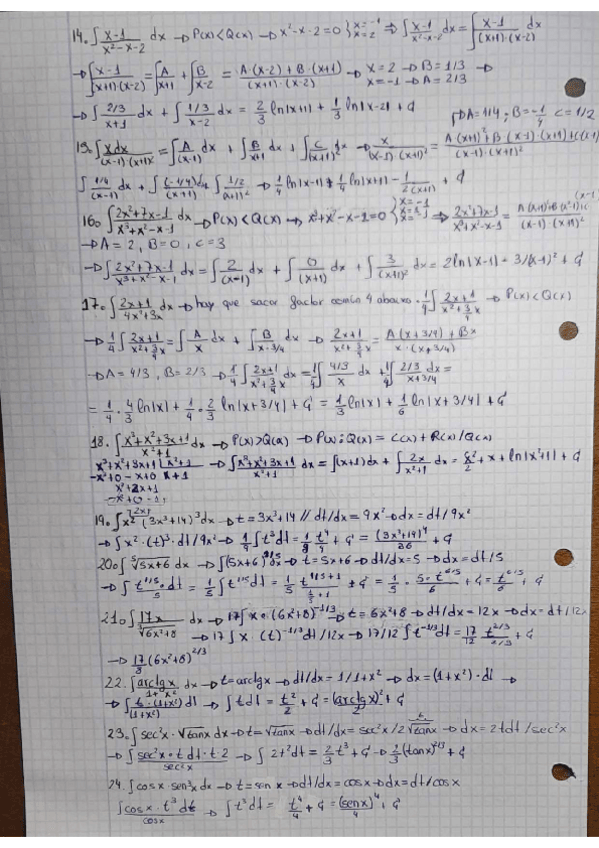 14. ∫ x-1 / x²-x-2 dx → P(x)<Q(x) → x²-x-2=0 } x=-1 x=2 ⇒ ∫ x-1 / x²-x-2 dx = ∫ x-1 / (x+1)·(x-2) dx
→ ∫ x-1 / (x+1)(x-2) = ∫ A / x+1 + ∫ B / x-2 = A·(x-2) + B·(x+1) / (x+1)·(x-2) → x=2 → B=1/3 → x=-1 → A=2/3
→ ∫ 2/3 / x+1 dx + ∫ 1/3 / x-2 dx = 2/3 ln|x+1| + 1/3 ln|x-2| + C
→ A=1/4 ; B=-1/4 C=1/2
15. ∫ x dx / (x-1)·(x+1)² = ∫ A / (x-1) dx + ∫ B / x+1 dx + ∫ C / (x+1)² dx → x / (x-1)·(x+1)² = A(x+1)² + B·(x-1)·(x+1) + C(x-1) / (x-1)·(x+1)²
∫ 1/4 / (x-1) dx + ∫ (-1/4) dx / (x+1) + ∫ 1/2 / (x+1)² → 1/4 ln|x-1| + 1/4 ln|x+1| - 1 / 2(x+1) + C
16. ∫ 2x²+7x-1 / x³+x²-x-1 dx → P(x)<Q(x) → x³+x²-x-1=0 } x=-1 x=1 x=-1 ⇒ 2x²+7x-1 / x³+x²-x-1 =
→ A=2, B=0, C=3
→ ∫ 2x²+7x-1 / x³+x²-x-1 dx = ∫ 2 / (x-1) dx + ∫ 0 / (x+1) dx + ∫ 3 / (x+1)² dx = 2ln|x-1| + 3/(x-1)² + C
17. ∫ 2x+1 / 4x²+3x dx → hay que sacar factor común 4 abajo · 1/4 ∫ 2x+1 / x²+3/4 x → P(x)<Q(x)
→ 1/4 ∫ 2x+1 / x²+3/4 x = ∫ A / x dx + ∫ B / x·3/4 dx → 2x+1 / x²+3/4 x = A(x+3/4) + Bx / x·(x+3/4)
→ A=4/3, B=2/3 → 1/4 ∫ 2x+1 / x²+3/4 x dx = 1/4 ∫ 4/3 / x dx + 1/4 ∫ 2/3 dx / x+3/4 =
= 1/4 · 4/3 ln|x| + 1/4 · 2/3 ln|x+3/4| + C = 1/3 ln|x| + 1/6 ln|x+3/4| + C
18. ∫ x³+x²+3x+1 / x²+1 dx → P(x)>Q(x) → P(x):Q(x) = C(x) + R(x)/Q(x)
x³+x²+3x+1 | x²+1 → ∫ x³+x²+3x+1 / x²+1 dx = ∫(x+1)dx + ∫ 2x / x²+1 dx = x²/2 + x + ln|x²+1| + C
-x³+0 -x+0 x+1
x²+2x+1
-x²+0-1
19. ∫ x² (3x³+14)³ dx → t=3x³+14 // dt/dx = 9x² → dx = dt/9x²
→ ∫ x²·(t)³·dt/9x² → 1/9 ∫ t³dt = 1/9 t⁴/4 + C = (3x³+14)⁴ / 36 + C
20. ∫ ⁵√5x+6 dx → ∫(5x+6)^1/5 dx → t=5x+6 → dt/dx=5 → dx=dt/5
→ ∫ t^1/5·dt / 5 = 1/5 ∫ t^1/5 dt = 1/5 t^1/5+1 / 1/5+1 + C = 1/5 · 5·t^6/5 / 6 + C = t^6/5 / 6 + C
21. ∫ 17x / ³√6x²+8 dx → 17∫x·(6x²+8)^-1/3 → t=6x²+8 → dt/dx=12x → dx=dt/12x
→ 17∫x·(t)^-1/3 dt/12x → 17/12 ∫ t^-1/3 dt = 17/12 t^2/3 / 2/3 + C
→ 17/8 (6x²+8)^2/3
22. ∫ arctgx / 1+x² dx → t=arctgx → dt/dx=1/1+x² → dx=(1+x²)·dt →
→ ∫ t·(1+x²)dt / (1+x²) → ∫ t dt = t²/2 + C = (arctgx)²/2 + C
23. ∫ sec²x·√tanx dx → t=√tanx → dt/dx = sec²x/2√tanx → dx=2tdt/sec²x
→ ∫ sec²x·t dt·t·2 / sec²x → ∫ 2t²dt = 2/3 t³ + C → 2/3 (tanx)^2/3 + C
24. ∫ cosx·sen³x dx → t=senx → dt/dx=cosx → dx=dt/cosx
∫ cosx·t³dt / cosx → ∫ t³dt = t⁴/4 + C = (senx)⁴/4 + C